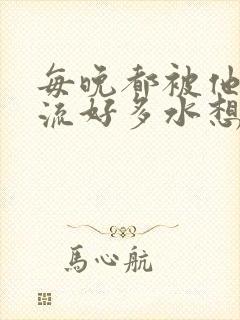 每晚都被他
流好多水想
馬心航